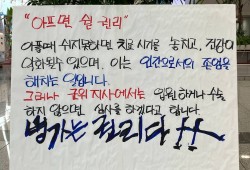 "아프면 쉴 권리"
아플때 쉬지못하면 치료 시기를 놓치고, 건강이
악화될수 있으며, 이는 인간으로서의 존엄을
해치는 일입니다.
그러나 구위 지사에서는 입원하거나 수술
하지 않으면 심사를 하겠다고 합니다.
병가는 권리다!!